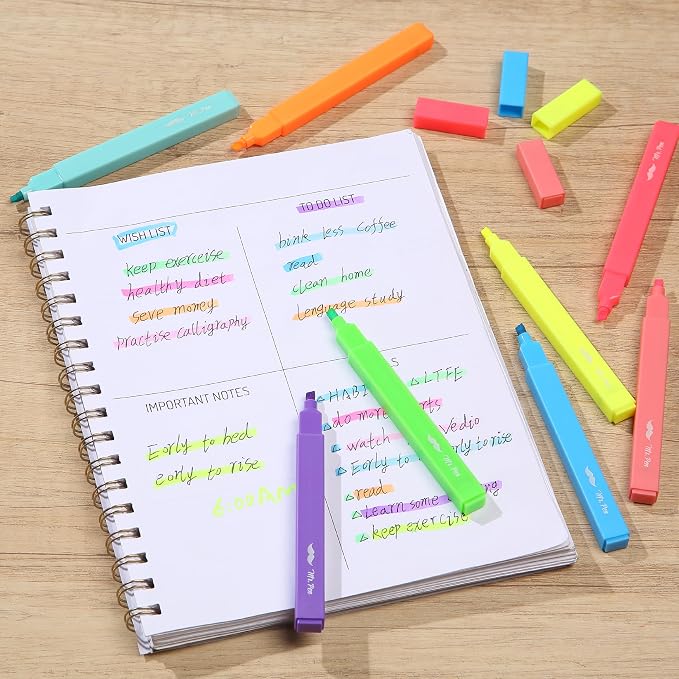 WISH LIST
keep exerceise
healthy diet
seve money
practise calligraphy
TO DO LIST
bink less coffee
read
clean home
lenguage study
IMPORTANT NOTES
Eorly to bed
eorly to rise
6:00AM
HABI
LTFE
do more
watch Vedio
Eorly to rise
read
Learn some
keep exercise
Mr. Pen
Mr. Pen
Mr. Pen
Mr. Pen
Mr. Pen